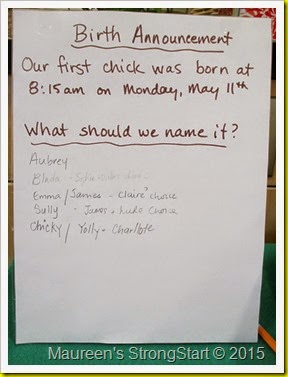 Birth Announcement
Our first chick was born at
8:15am on Monday, May 11th
What should we name it?
Aubrey
Emma / James - Claire's choice
Sully - James + Luke choice
Chicky / Yolly - Charllote
Maureen's StrongStart © 2015